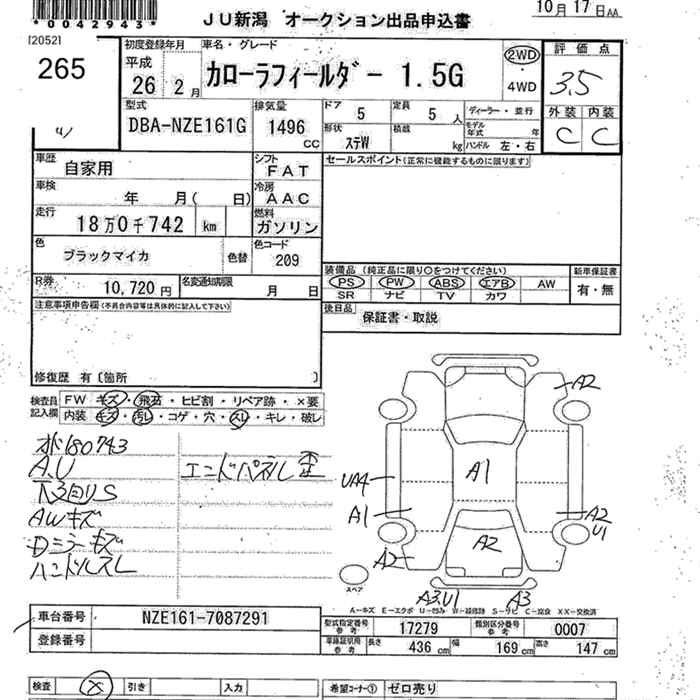 *0042943*
JU新潟 オークション出品申込書
10月17日AA
I20521
265
初度登録年月
平成
26 2月
車名・グレード
カローラフィールダー 1.5G
2WD
・
4WD
評価点
3.5
外装 内装
C C
型式
DBA-NZE161G
排気量
1496 cc
ドア
5
定員
5 人
形状
ステW
積載
kg
ディーラー・並行
モデル年式 年
ハンドル 左・右
車歴
自家用
シフト
FAT
セールスポイント(正常に機能するものに限ります)
車検
年 月( 日)
冷房
AAC
走行
18万0千742 km
燃料
ガソリン
色
ブラックマイカ
色替
色コード
209
装備品 (純正品に限り○をつけてください)
新車保証書
PS PW ABS エアB AW
SR ナビ TV カワ
有・無
R券
10,720円
名変通知期限
月 日
後日品
保証書・取説
注意事項申告欄(不具合内容等は具体的に記入して下さい)
修復歴 有〔箇所 〕
検査員記入欄
FW キズ・飛石・ヒビ割・リペア跡・×要
内装 キズ・汚レ・コゲ・穴・スレ・キレ・破レ
オド180743
A.U
下回りS
AWキズ
Dミラーキズ
ハンドルスレ
エンドパネル歪
A2
UA4
A1
A1
A2
U1
A2
A2
スペア
A3.U1
A3
A-キズ E-エクボ U-凹み W-補修跡 S-サビ C-腐食 XX-交換済
車台番号
NZE161-7087291
登録番号
型式指定番号 参考
17279
類別区分番号 参考
0007
車庫証明用 参考
長さ
436 cm
幅
169 cm
高さ
147 cm
検査
引き
入力
希望コーナー①
ゼロ売り